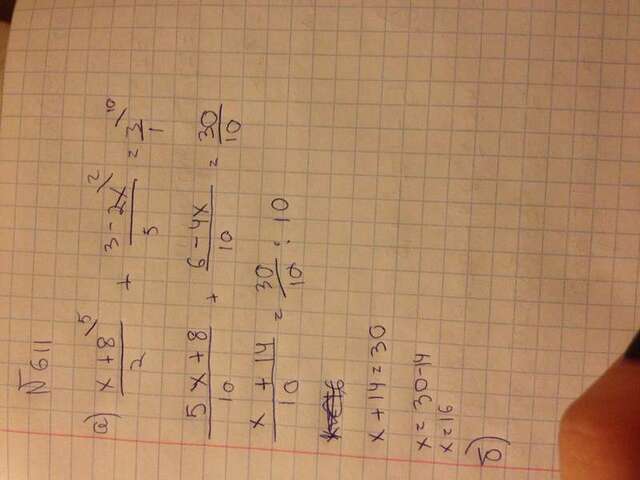 №611
а) (x + 8)/2 \5 + (3 - 2x)/5 \2 = 3/1 \10
(5x + 8)/10 + (6 - 4x)/10 = 30/10
(x + 14)/10 = 30/10 : 10
x + 14 = 30
x = 30-14
x = 16
б)